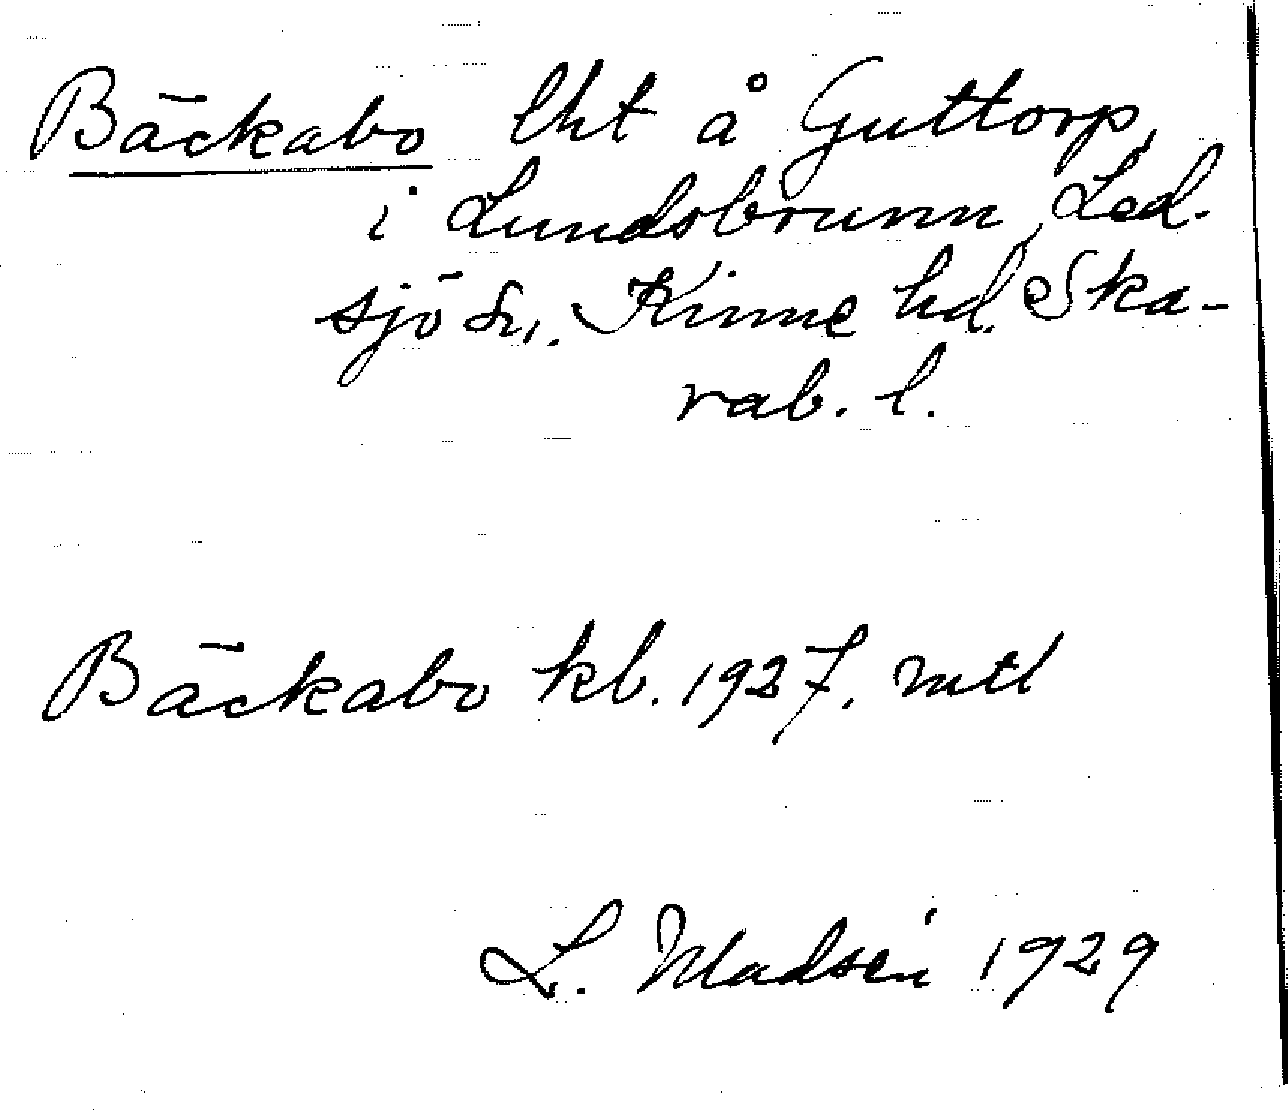 Bäckabo lht å Guttorp,
i Lundsbrunn, Led-
sjö sn., Kinne hd. Ska-
rab. l.
Bäckabo kb. 1927, mtl
L. Madsén 1929